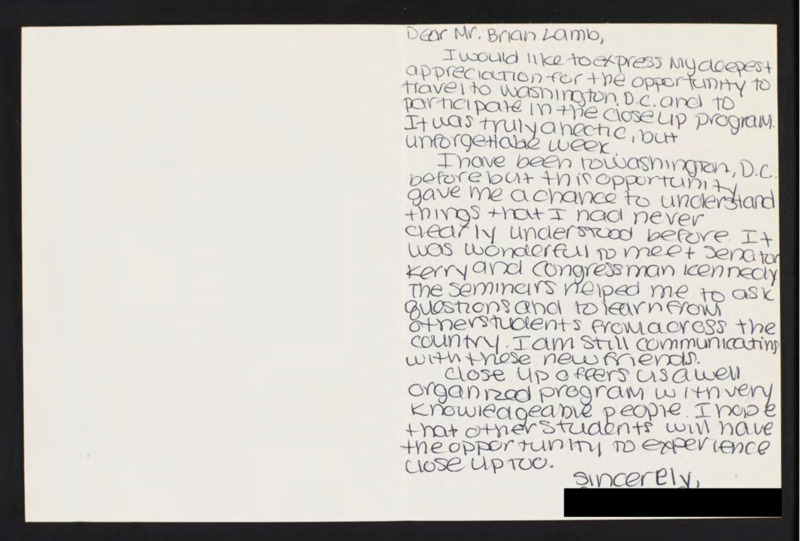 Dear Mr. Brian Lamb,
I would like to express my deepest
appreciation for the opportunity to
travel to Washington, D.C. and to
participate in the close up program.
It was truly a hectic, but
unforgettable week.
I have been to Washington, D.C.
before but this opportunity
gave me a chance to understand
things that I had never
clearly understood before. It
was wonderful to meet Senator
Kerry and Congressman Kennedy
The seminars helped me to ask
questions and to learn from
other students from across the
country. I am still communicating
with these new friends.
Close Up offers us a well
organized program with very
knowledgeable people. I hope
that other students will have
the opportunity to experience
Close Up too.
Sincerely,